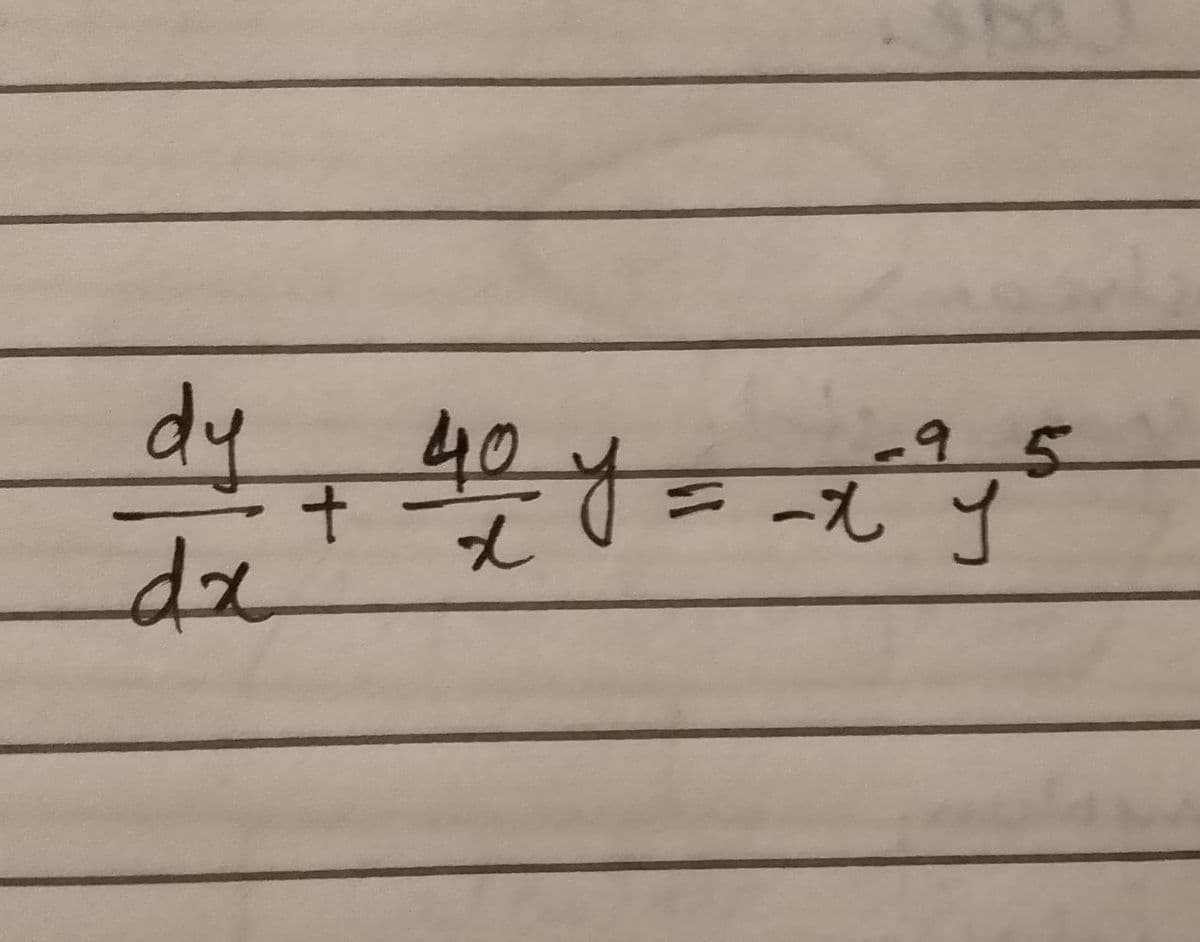 dy/dx + 40/x y = -x^-9 y^5